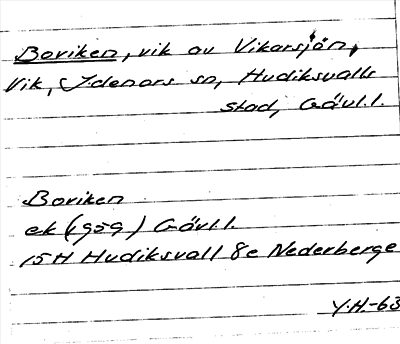 Boviken, vik av Vikarsjön,
Vik, Idenors sn, Hudiksvalls
stad, Gävl.l.
Boviken
ek (1959) Gävl.l.
15H Hudiksvall 8e Nederberge
Y.H.-63